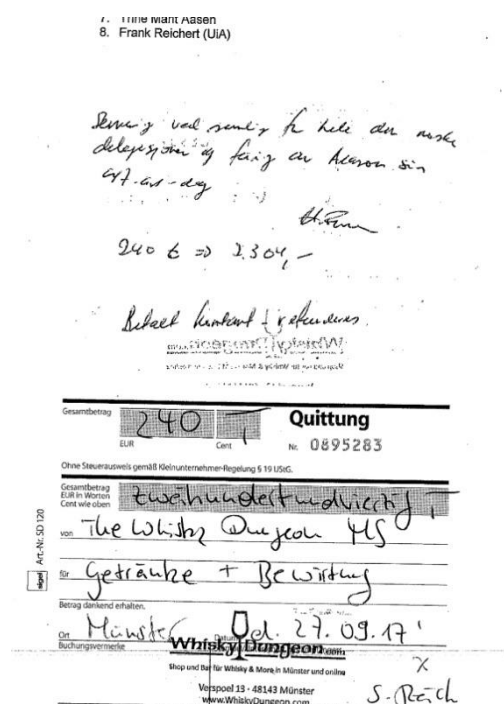 7. Trine Marit Aasen
8. Frank Reichert (UiA)
Servering ved samling for hele den norske
delegasjonen og feiring av Aasen sin
240 € => 2.304,-
Betalt kontant & refunderes.
Gesamtbetrag
240 ,
EUR
Cent
Quittung
Nr. 0895283
Ohne Steuerausweis gemäß Kleinunternehmer-Regelung § 19 UStG.
Gesamtbetrag
EUR in Worten
Cent wie oben
zweihundertundvierzig ,
von The Whisky Dungeon MS
für Getränke + Bewirtung
Betrag dankend erhalten.
Ort Münster Datum d. 27.09.17
Buchungsvermerke
WhiskyDungeon.com
Shop und Bar für Whisky & More in Münster und online
Verspoel 13 - 48143 Münster
www.WhiskyDungeon.com
sigel Art.-Nr. SD 120